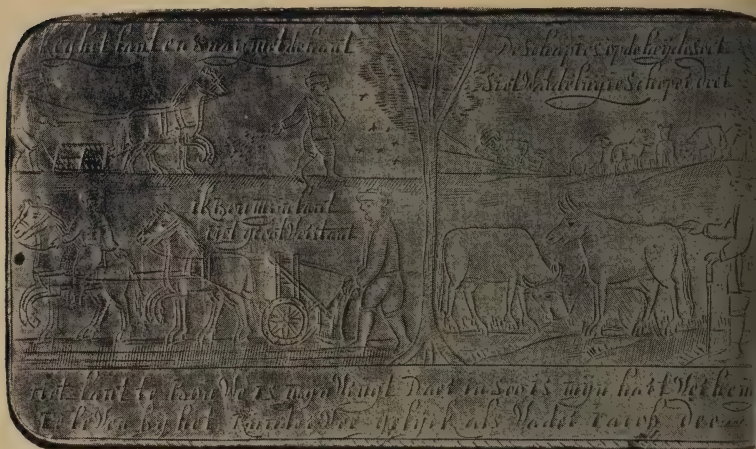 het lant en met de hant
De schapies op de heyde siet
Siet Wat de scheper diet
ik bou myn lant
met Verstant
Het lant te bouWe is myn Vrugt Daer in soo is myn hart Verheu
te leVen by het Runder Vee gelyck als Vader Jacop dee